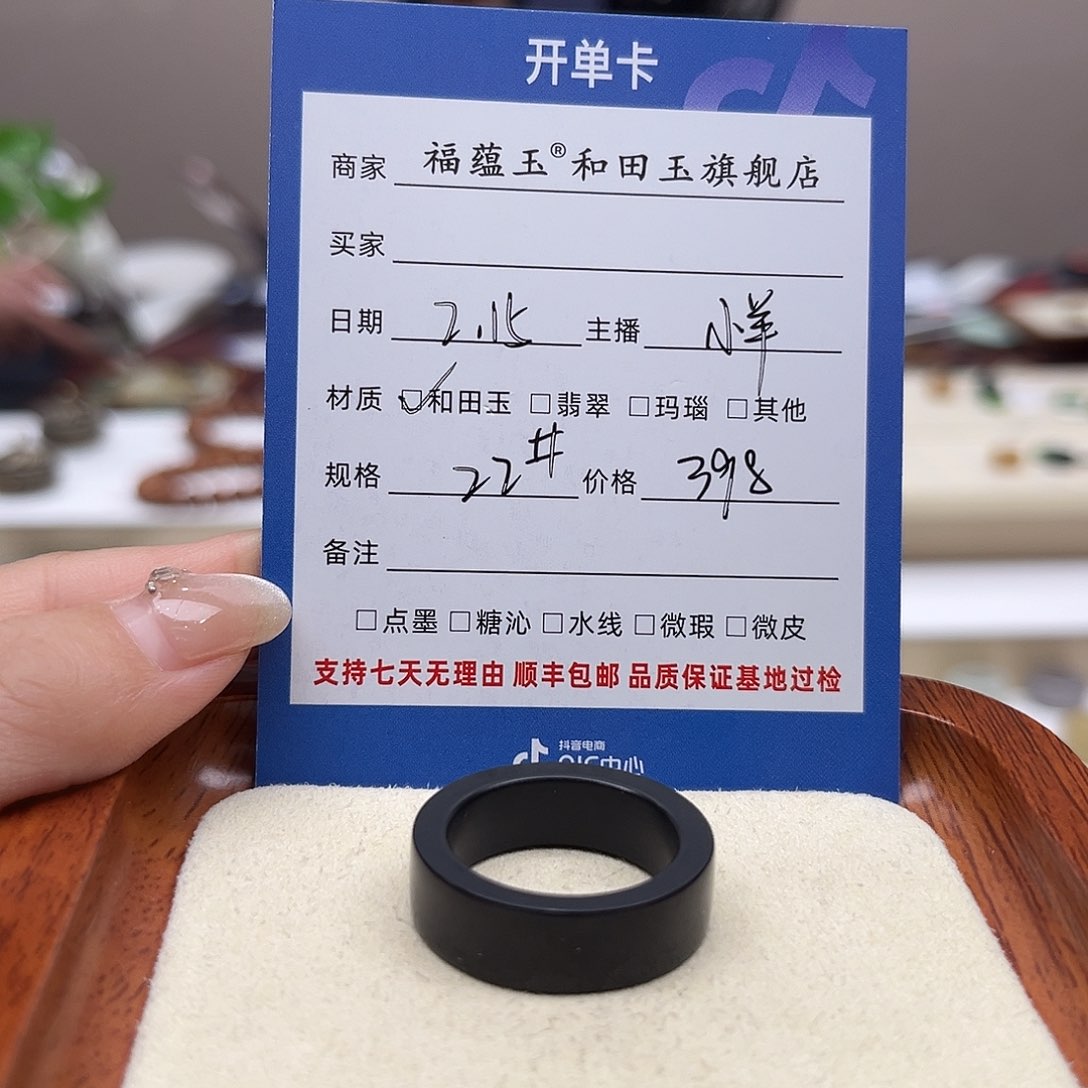 开单卡
商家 福蕴玉®和田玉旗舰店
买家
日期 2.15 主播 小羊
材质 ☑和田玉 □翡翠 □玛瑙 □其他
规格 22# 价格 398
备注
□点墨 □糖沁 □水线 □微瑕 □微皮
支持七天无理由 顺丰包邮 品质保证基地过检
抖音电商
QIC中心